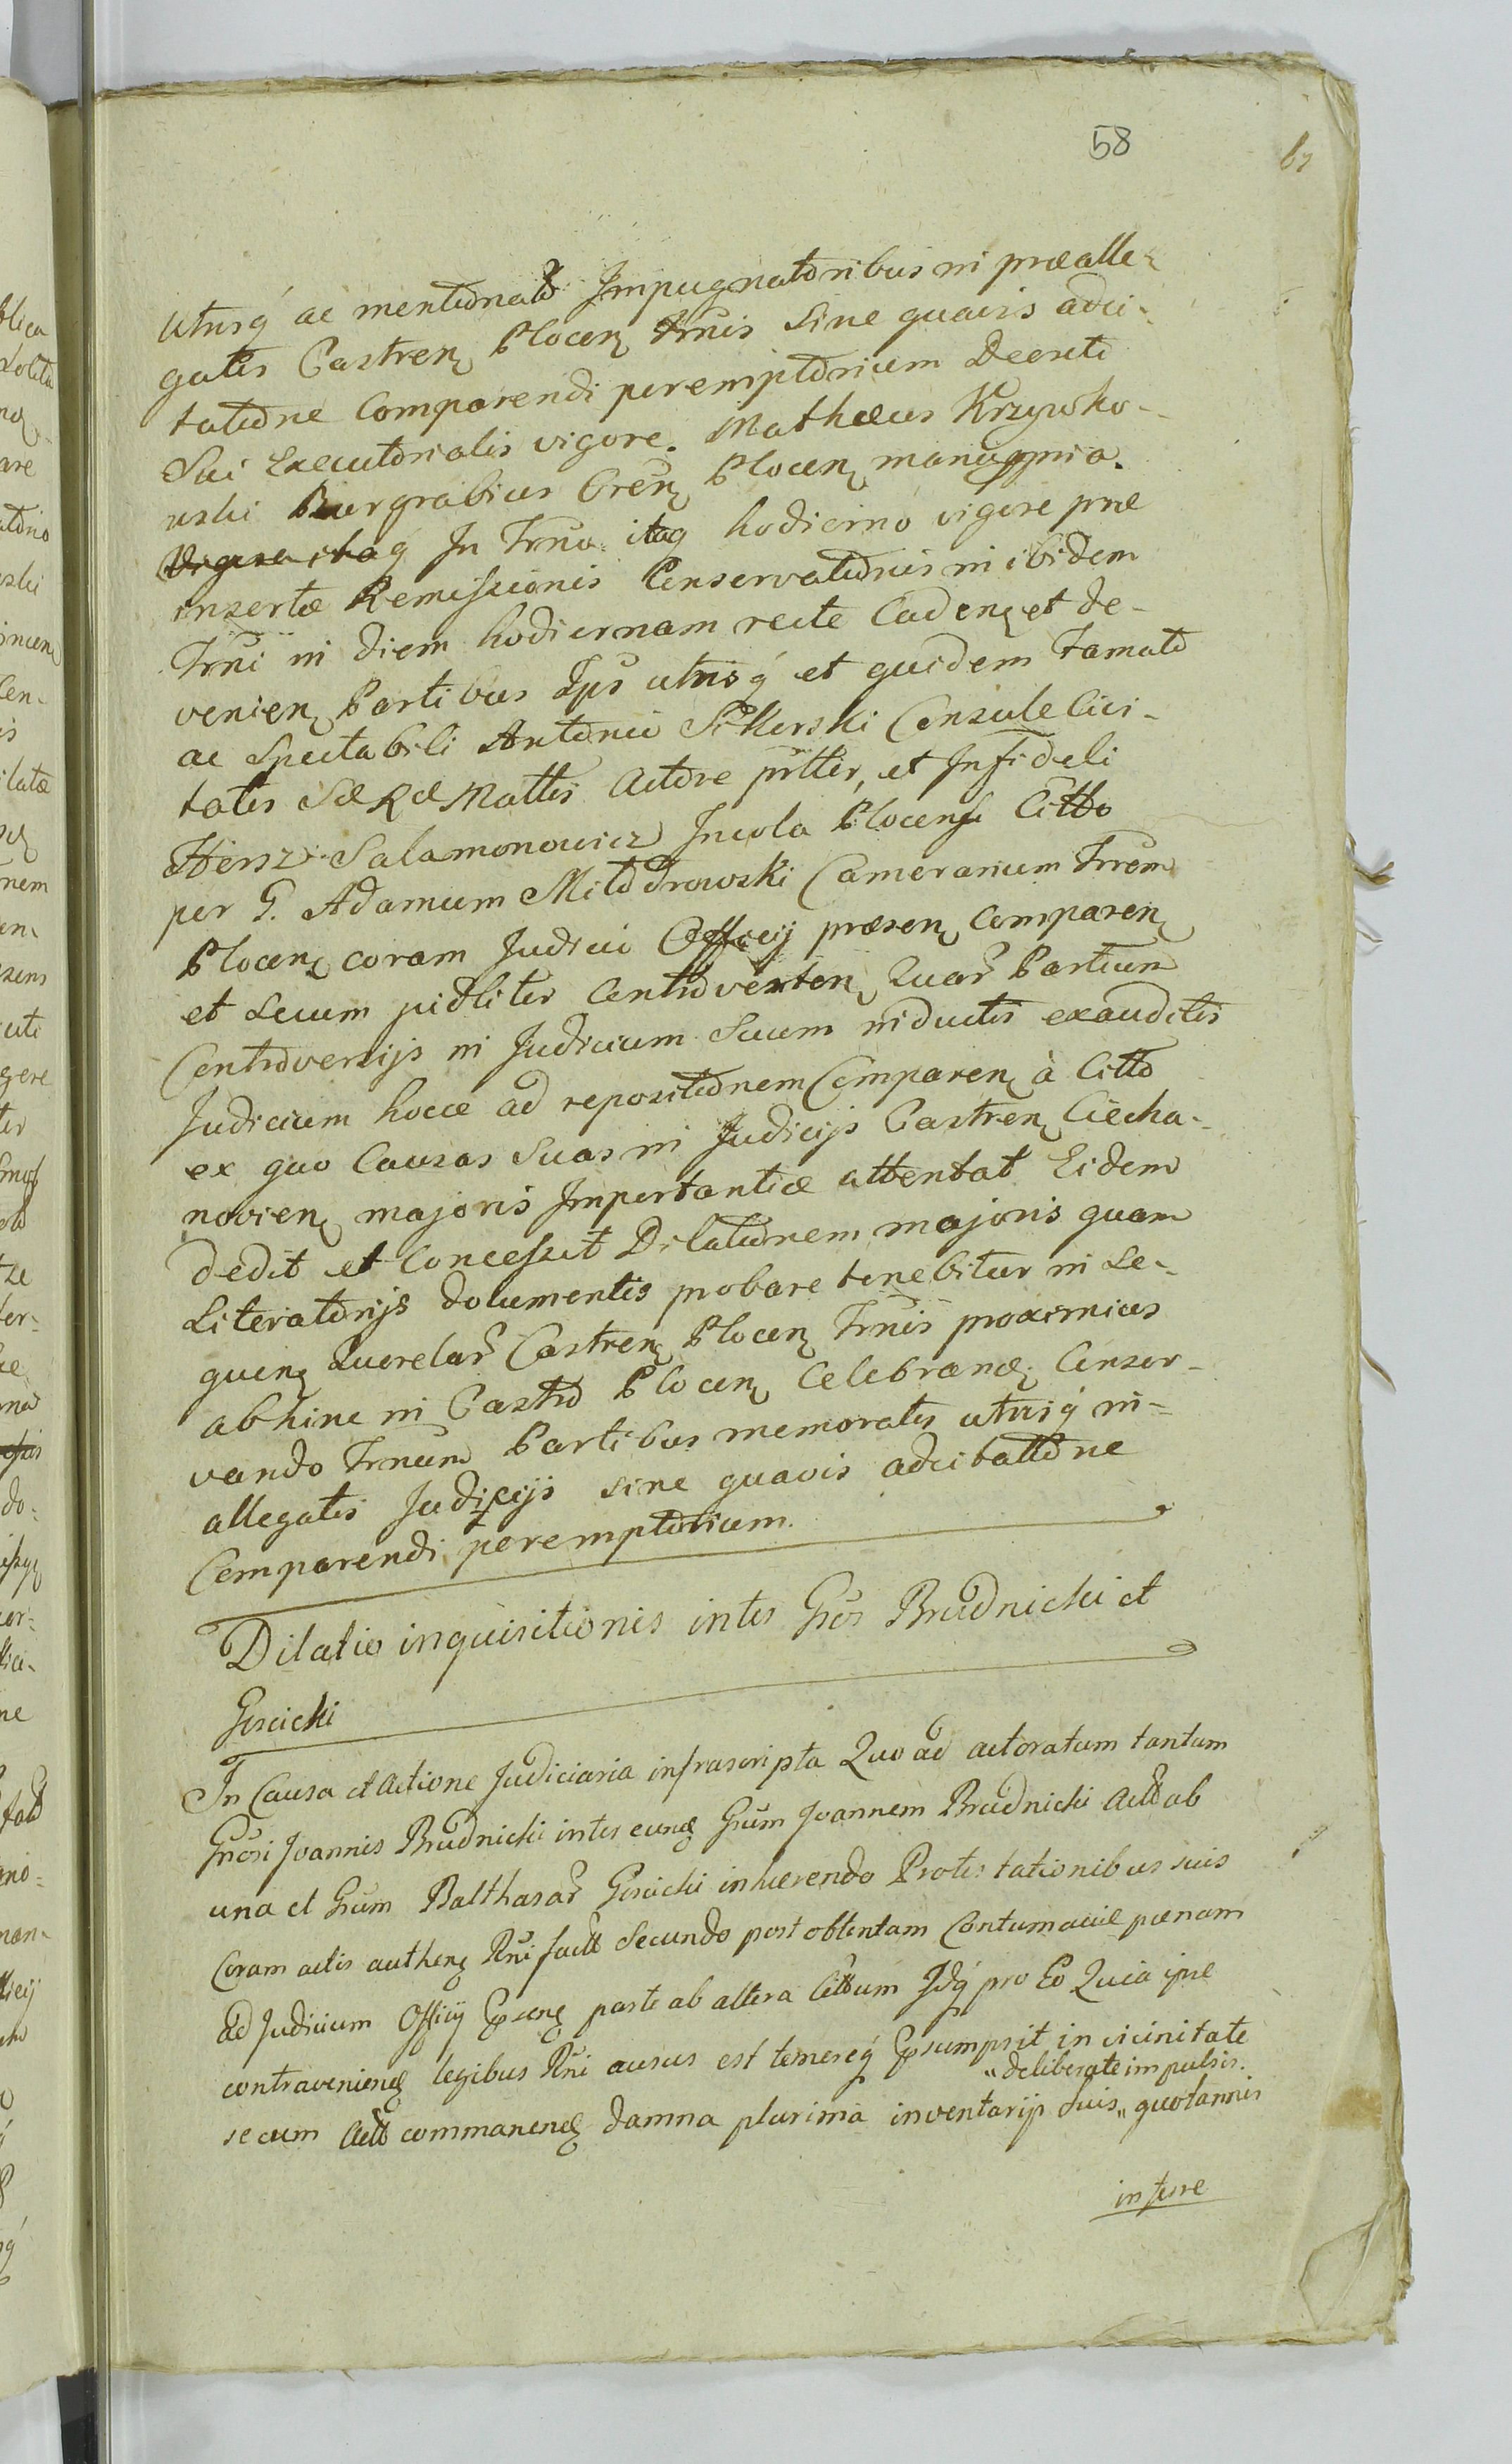 58
utrisq́ ac mentionato Impugnatoribus in prealle-
gatis Castren Plocen Trnis sine quavis adci-
tatione Comparendi peremptorium Decreti
Sui Executorialis vigore. Mathaeus Krzywko-
wski Burgrabius Cren Plocen manuppria.
Vigore itaq In Trno itaq hodierno vigore prae
insertae Remissionis Conservationis in ibidem
Trni in diem hodiernam recte Caden et de-
venien Partibus Ips utrisq́ et quidem Famato
ac Spectabili Antonio Sikorski Consule Civi-
tatis SæRæMattis Actore prtter, et Infideli
Hersz Salamonowicz Incola Plocensi Citto
per G. Adamum Młodzrowski Camerarium Trrem
Plocen coram Judicio Officij praesen Comparen
et secum pidliter Controverten Quar Partium
Controversijs in Judicium Suum inductis exauditis
Judicium hocce ad repositionem Comparen à Citto
ex quo Causas Suas in Judicijs Castren Ciecha-
novien majoris Importantiæ attentat Eidem
dedit et Concessit Dilationem majoris quam
Literatorijs documentis probare tenebitur in se-
quen Querelar Castren Plocen Trnis proximius
abhinc in Castro Plocen Celebrand Conser-
vando Trnum Partibus memoratis utrisq́ in-
allegatis Judicijs sine quavis adcitattione
Comparendi peremptorium.
Dilatio inquisitionis inter Gros Brudnicki et
Goscicki
In Causa et Actione Judiciaria infrascripta Quo ad actoratum tantum
Gnosi Joannis Brudnicki inter eund Grum Joannem Brudnicki Actt ab
una et Grum Balthasar Goscicki inhaerendo Protestationibus suis
Coram actis authen Rni factt Secundo post obtentam Contumaciae poenam
ad Judicium Officij psens parte ab altera Cittum Idq́ pro Eo Quia ipse
contraveniend legibus Rni ausus est temereq́ psumpsit in vicinitate
„deliberate impulsis.
secum Actt commanend damna plurima inventarijs Suis „ quotannis
inferre